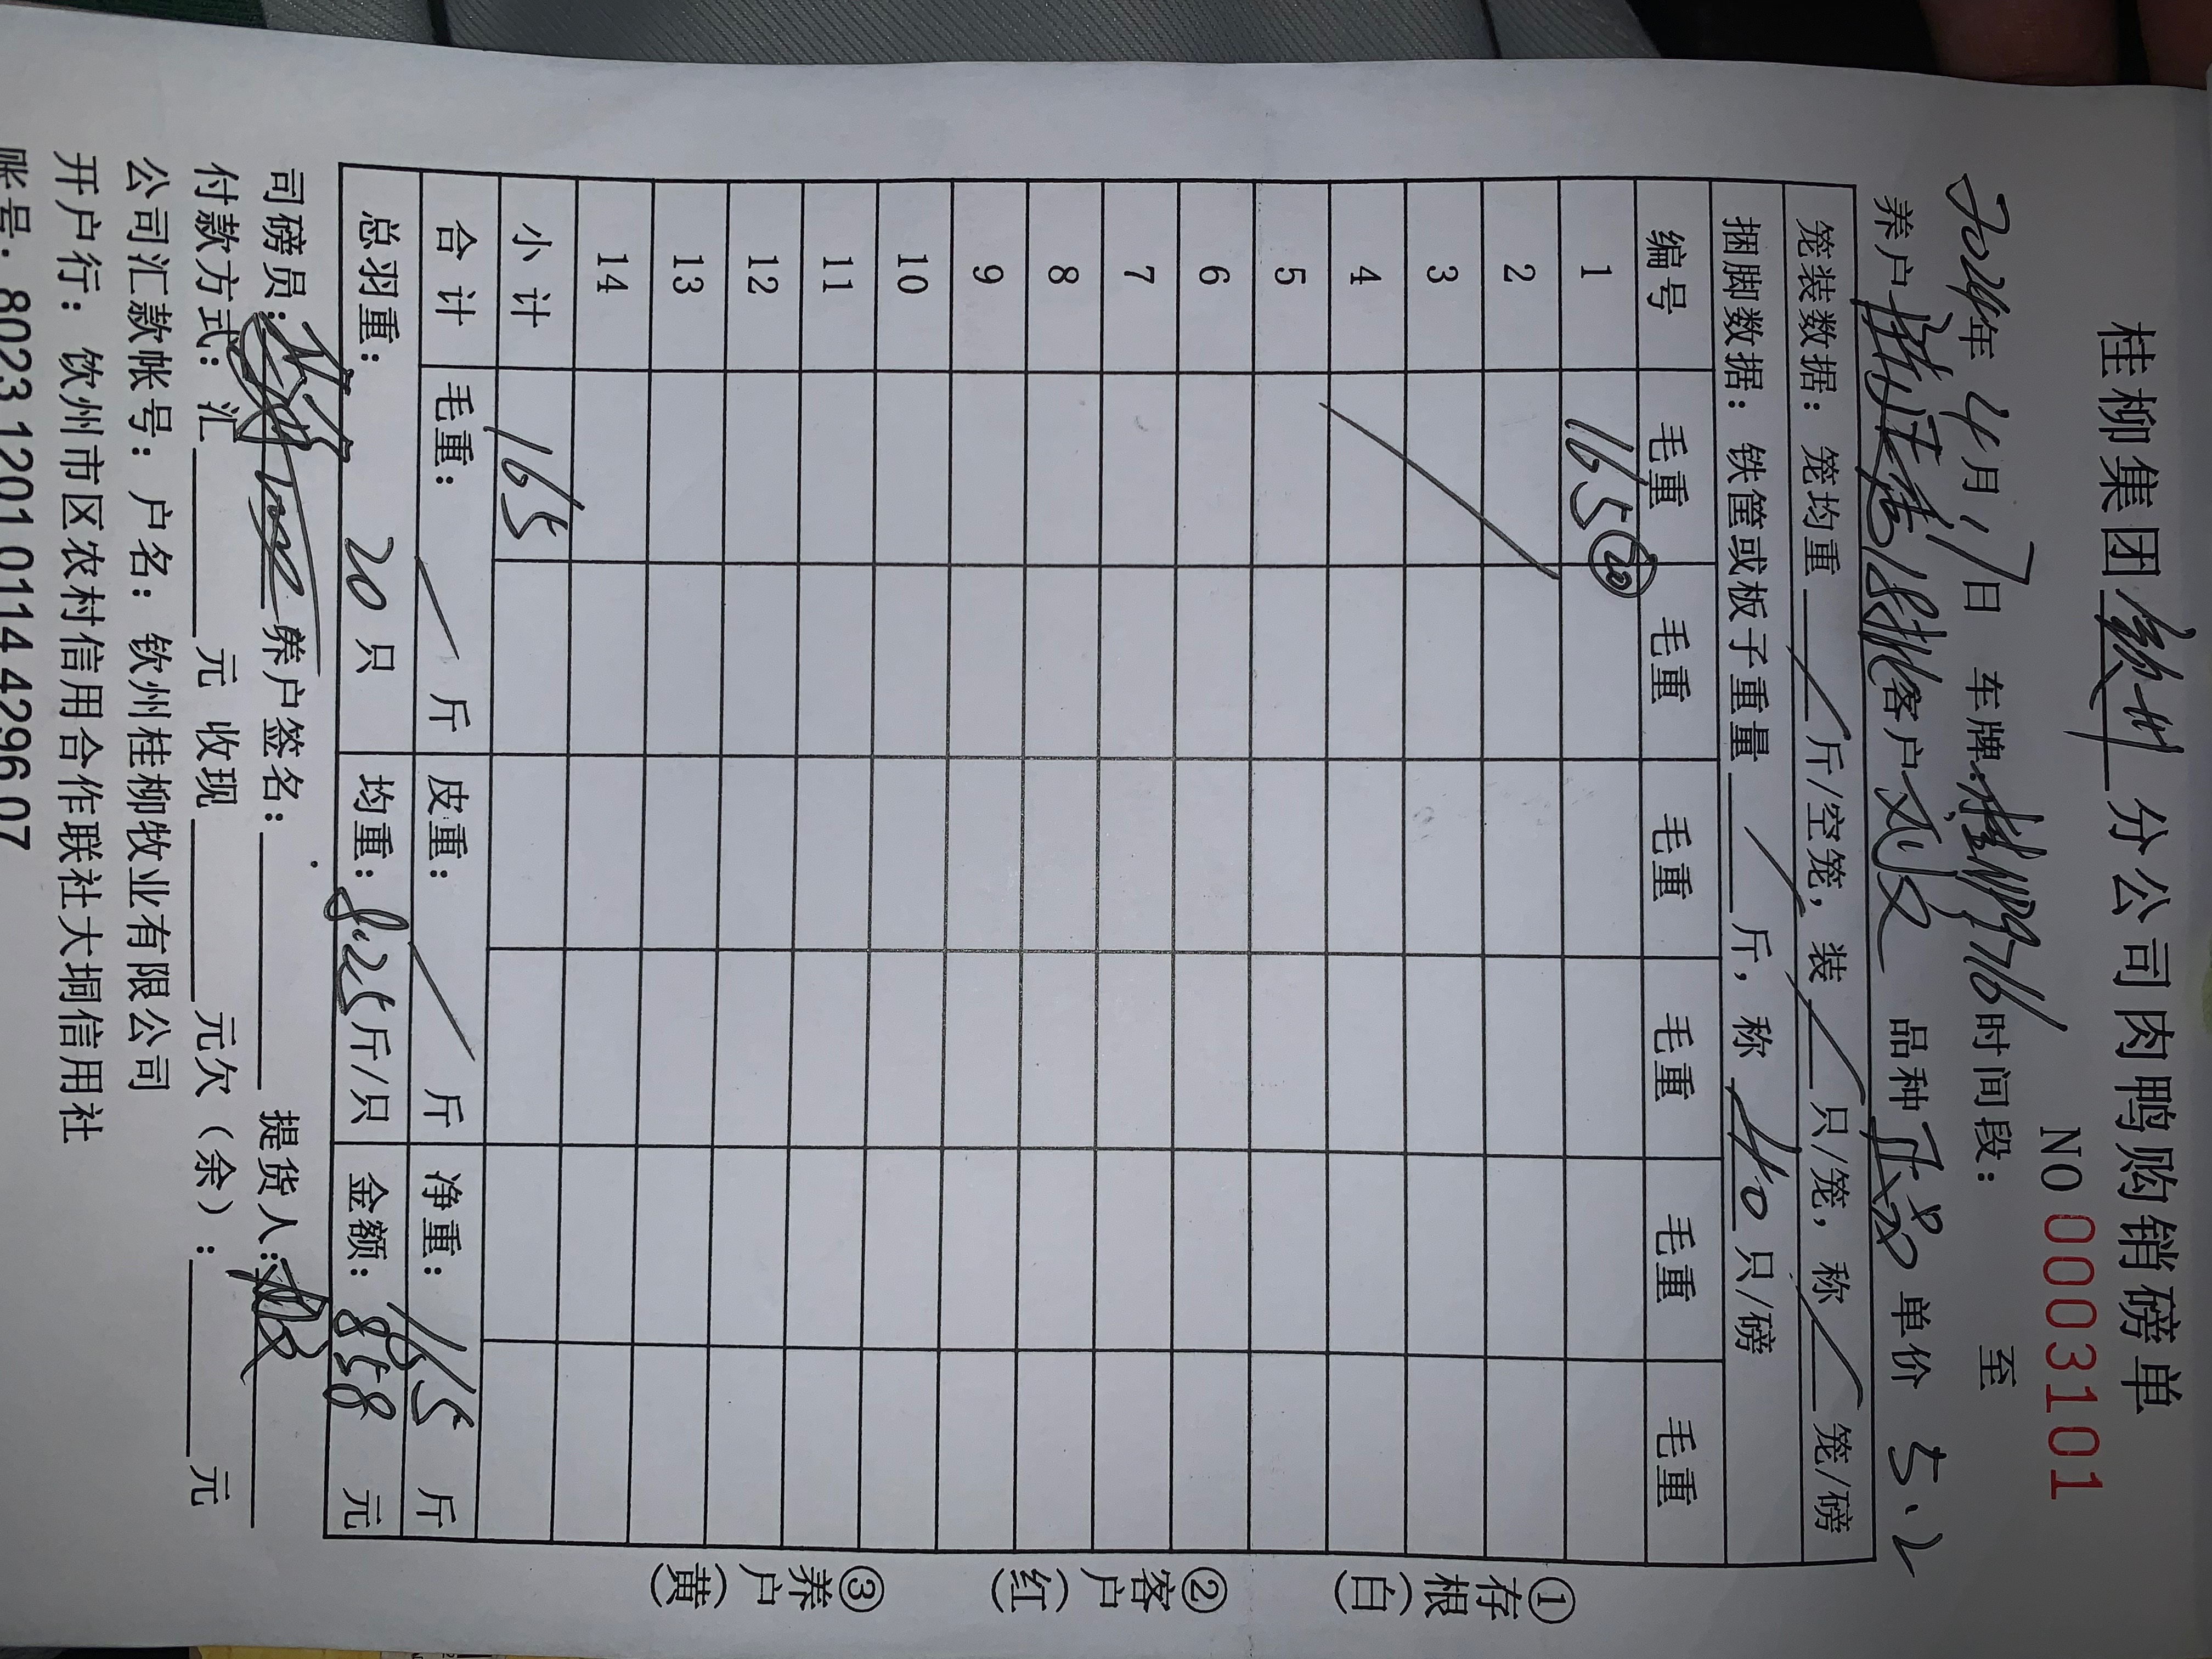 桂柳集团钦州分公司肉鸭购销磅单
NO 0003101
2024年4月17日 车牌: 时间段: 至
养户 客户 品种 单价 5.2
笼装数据: 笼均重 / 斤/空笼, 装 / 只/笼, 称 / 笼/磅
捆脚数据: 铁筐或板子重量 / 斤, 称 40 只/磅
编号 毛重 毛重 毛重 毛重 毛重 毛重
1 165 20
2
3
4
5
6
7
8
9
10
11
12
13
14
小计 165
合计 毛重: / 斤 皮重: / 斤 净重: 165 斤
总羽重: 20 只 均重: 8.25 斤/只 金额: 858 元
司磅员: 养户签名: 提货人:
付款方式: 汇 元 收现 元欠(余): 元
公司汇款帐号: 户名: 钦州桂柳牧业有限公司
开户行: 钦州市区农村信用合作联社大垌信用社
账号: 8023 1201 0114 4296 07
①存根(白) ②客户(红) ③养户(黄)